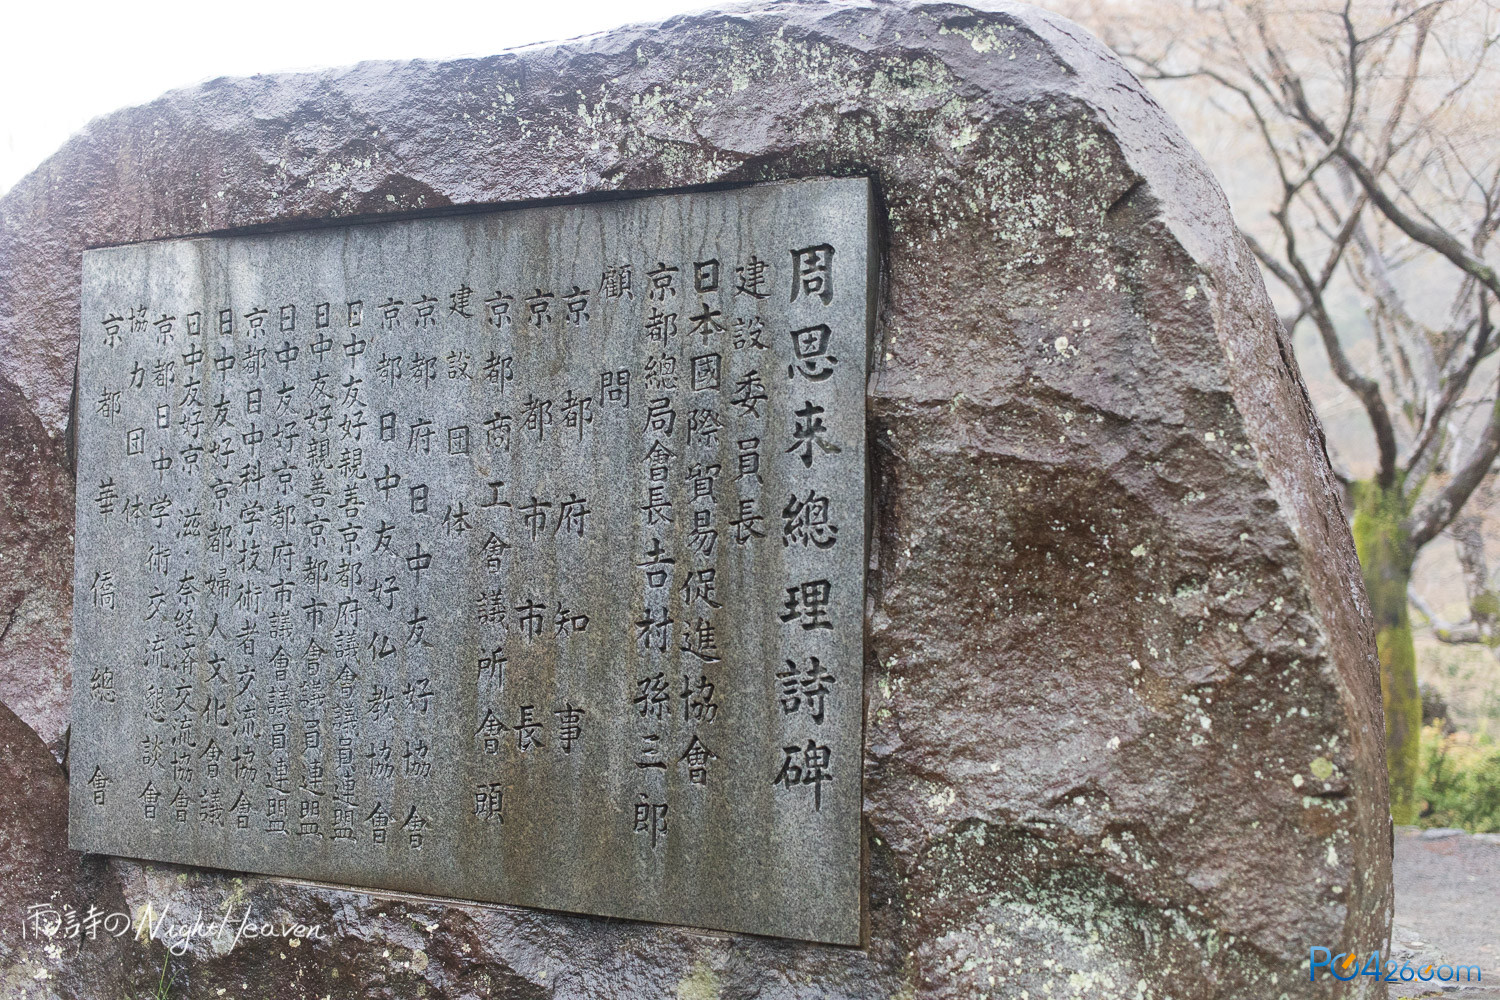 周恩来總理詩碑
建設委員長
日本國際貿易促進協會
京都總局會長吉村孫三郎
顧問
京都府知事
京都市市長
京都商工會議所會頭
建設团体
京都府日中友好協會
京都日中友好仏教協會
日中友好親善京都府議會議員連盟
日中友好親善京都市會議員連盟
日中友好京都府市議會議員連盟
京都日中科学技術者交流協會
日中友好京都婦人文化會議
日中友好京·滋·奈経済交流協會
京都日中学術交流懇談會
協力团体
京都華僑總會
雨詩のNightHeaven
PC426.com